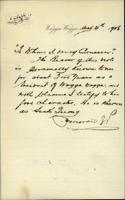 Wagga Wagga May 4th 1908
"To Whom it may Concern"
The Bearer of this note
is personally known to me
for about five years as a
Resident of Wagga Wagga and
with pleasure I testify to his
good character. He is known
as
J.P.